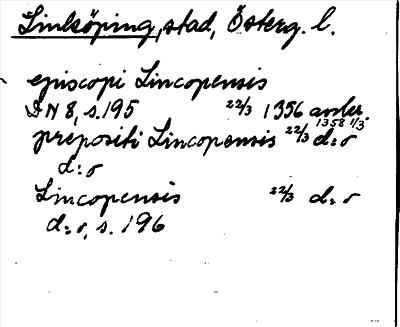 Linköping, stad, Österg. l.
episcopi Lincopensis
DN 8, s. 195 22/3 1356 
1358 1/3
prepositi Lincopensis 22/3 d:o
d:o
Lincopensis 22/3 d:o
d:o, s. 196